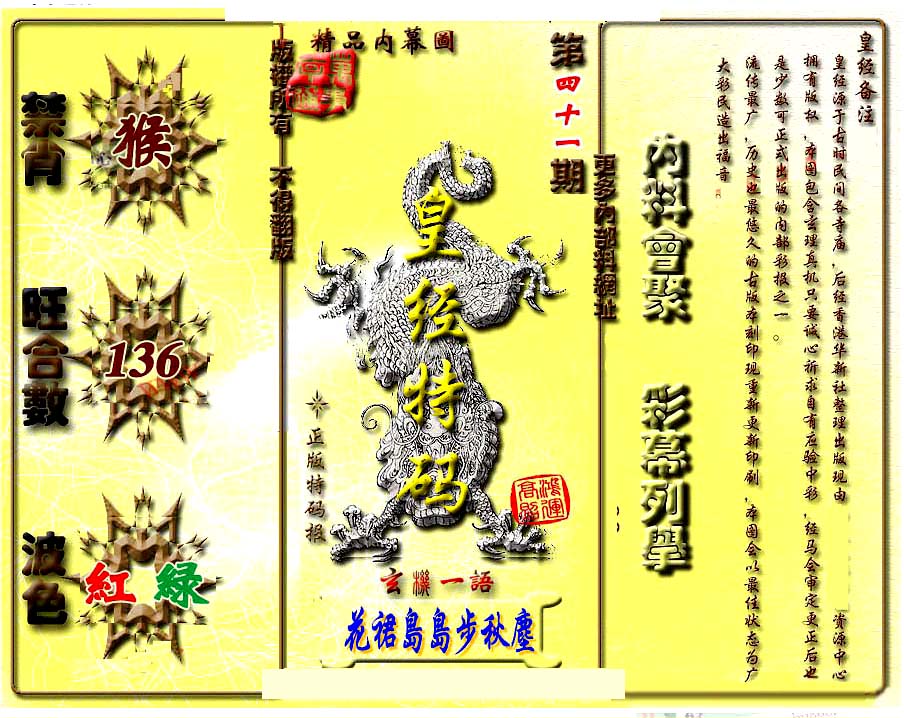 精品内幕圖
第四十一期
版權所有 不得翻版
更多內部料網址
禁肖
猴
旺合數
136
波色
紅 綠
皇经特码
正版特码报
鴻運
高照
玄機一語
花裙島島步秋塵
內料會聚
彩幕列舉
皇经备注
皇经源于古时民间各寺庙,后经香港华新社整理出版现由 资源中心
拥有版权,本图包含玄理真机只要诚心祈求自有应验中彩,经马会审定更正后也
是少数可正式出版的内部彩报之一。
流传最广,历史也最悠久的古版本刻印现重新更新印刷,本图会以最佳状态为广
大彩民造出福音